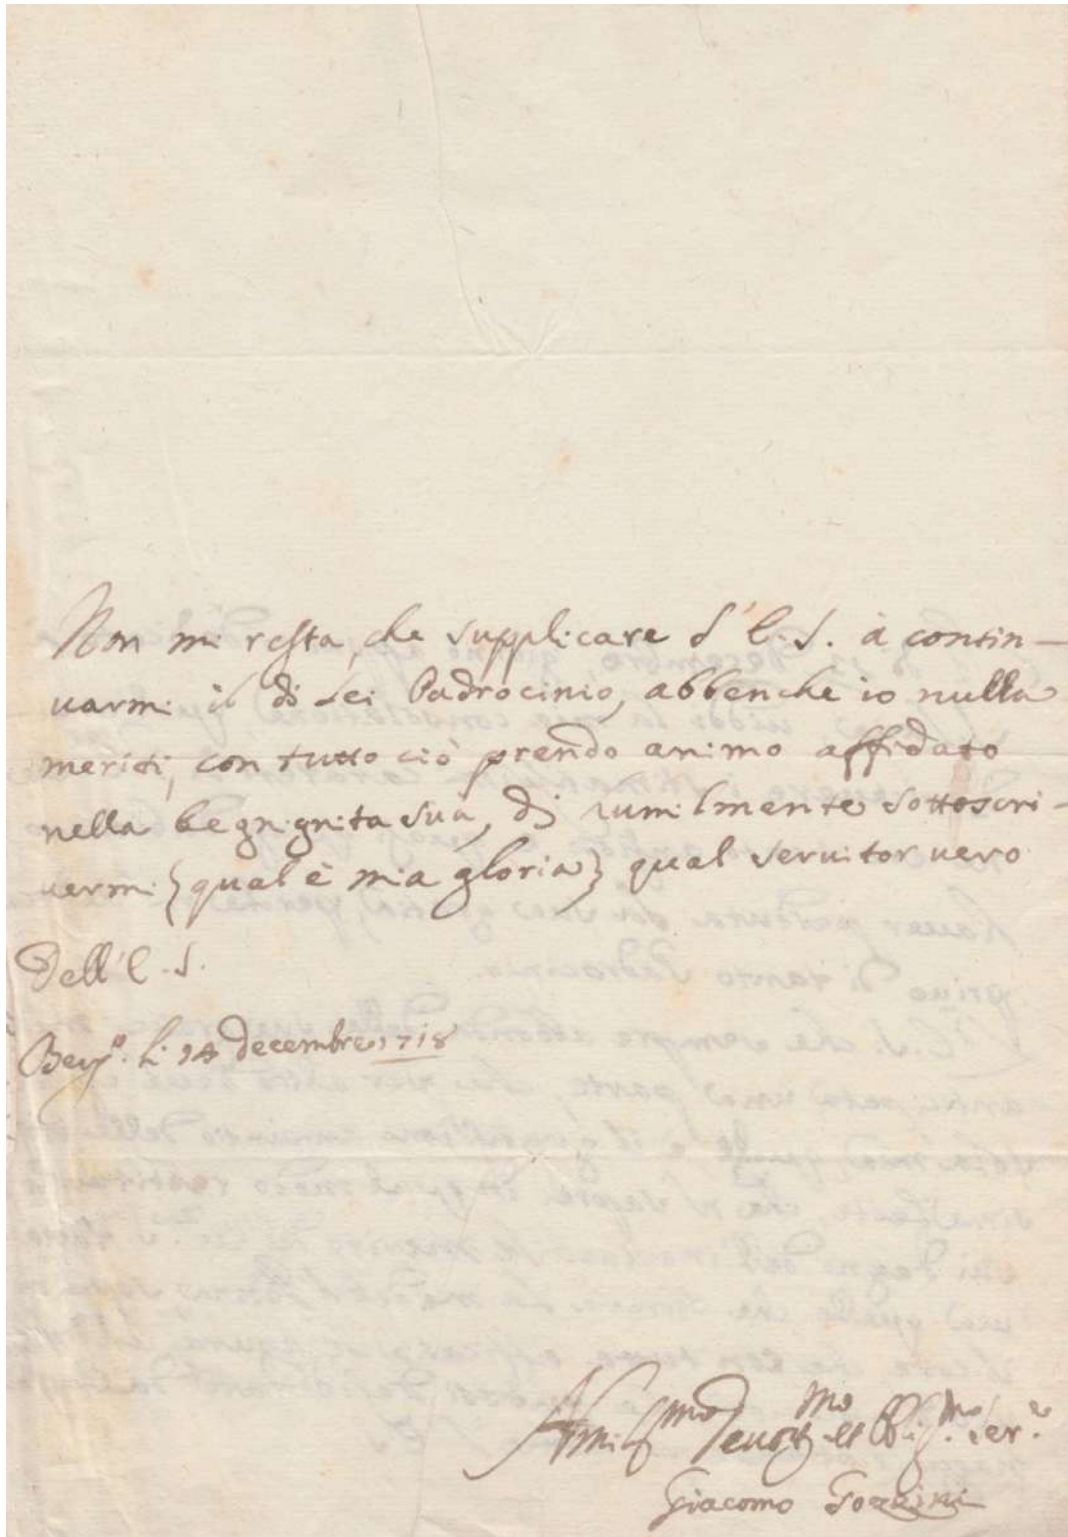 Non mi resta, che supplicare l'E. S. à contin–
uarmi il di Lei Padrocinio, abbenche io nulla
meriti, con tutto ciò prendo animo affidato
nella begnignita sua, di umilmente sottoscri–
uermi {qual è mia gloria} qual seruitor uero
Dell'E. S.
Berg.º li 14 decembre 1718
Umiliss.mo Deuot.mo et Obl.mo Ser.e
Giacomo Gozzini